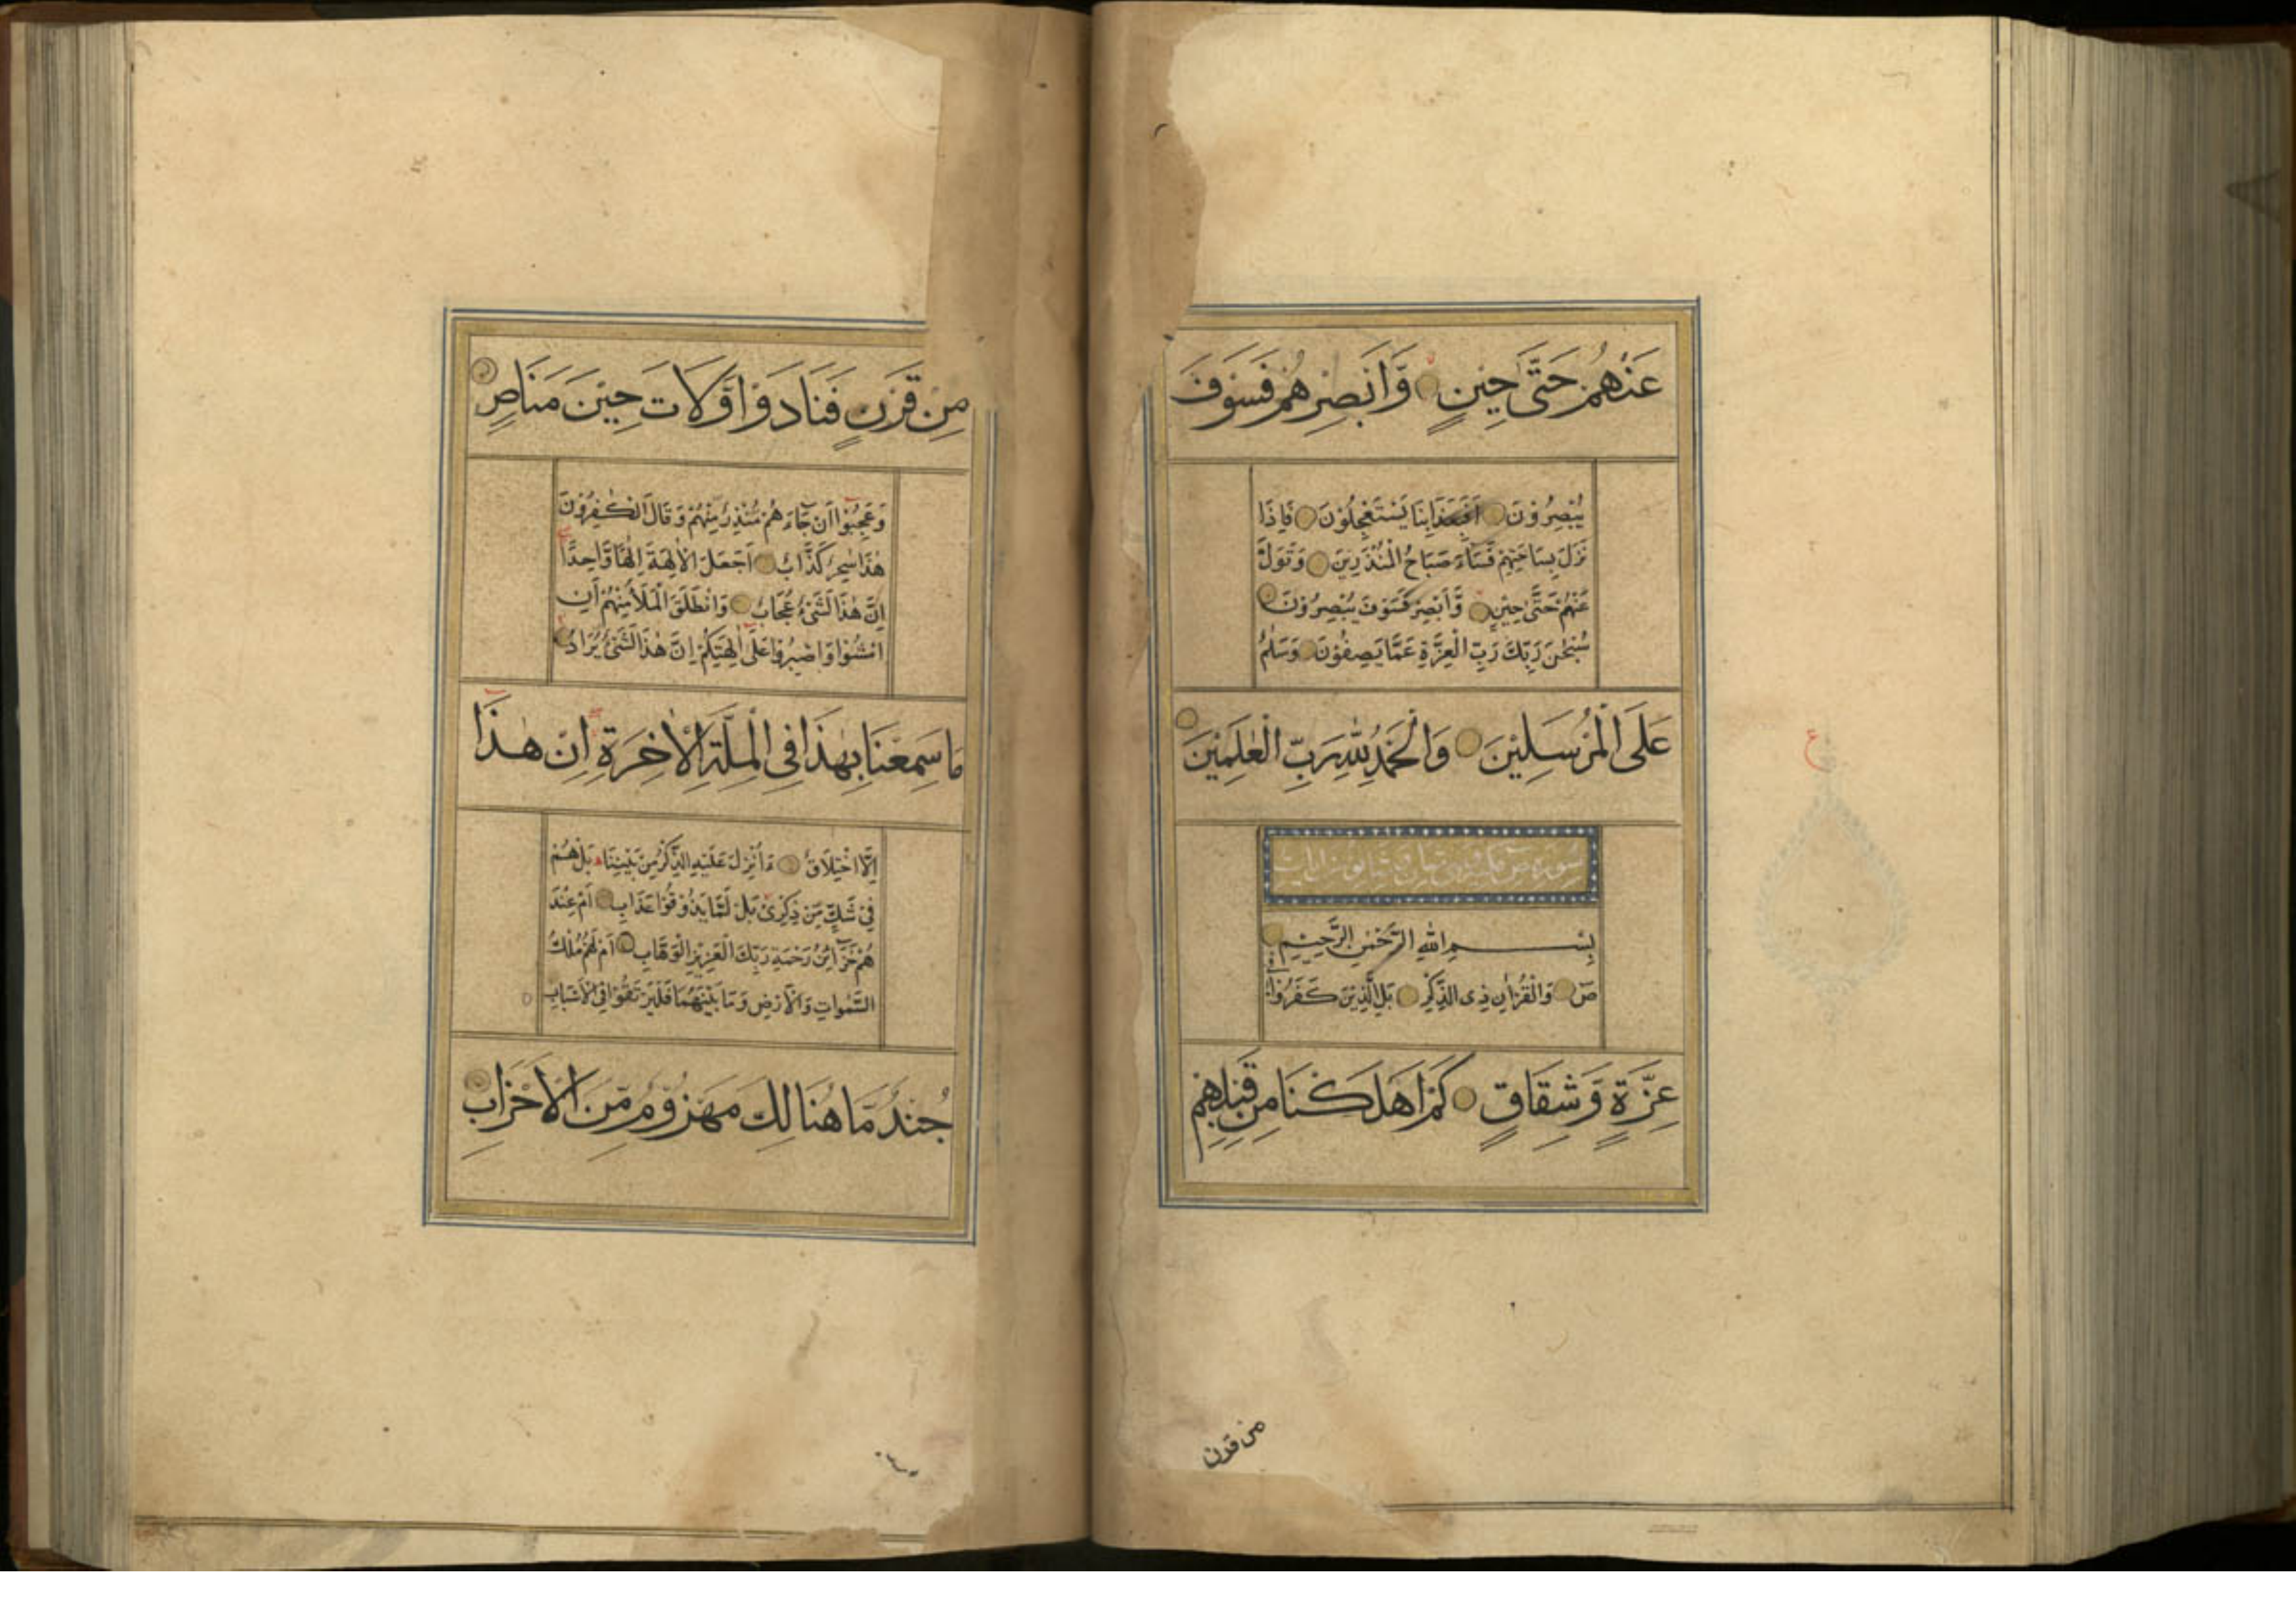 عَنْهُمْ حَتَّىٰ حِيْنٍ وَّاَبْصِرْهُمْ فَسَوْفَ
يُبْصِرُوْنَ اَفَبِعَذَابِنَا يَسْتَعْجِلُوْنَ فَاِذَا
نَزَلَ بِسَاحَتِهِمْ فَسَاءَ صَبَاحُ الْمُنْذَرِيْنَ وَتَوَلَّ
عَنْهُمْ حَتَّىٰ حِيْنٍ وَّاَبْصِرْ فَسَوْفَ يُبْصِرُوْنَ
سُبْحٰنَ رَبِّكَ رَبِّ الْعِزَّةِ عَمَّا يَصِفُوْنَ وَسَلٰمٌ
عَلَى الْمُرْسَلِيْنَ وَالْحَمْدُ لِلّٰهِ رَبِّ الْعٰلَمِيْنَ
سورة ص
بِسْمِ اللّٰهِ الرَّحْمٰنِ الرَّحِيْمِ
صٓ وَالْقُرْاٰنِ ذِى الذِّكْرِ بَلِ الَّذِيْنَ كَفَرُوْا فِىْ
عِزَّةٍ وَّشِقَاقٍ كَمْ اَهْلَكْنَا مِنْ قَبْلِهِمْ
من قرن
مِنْ قَرْنٍ فَنَادَوْا وَّلَاتَ حِيْنَ مَنَاصٍ
وَعَجِبُوْا اَنْ جَآءَهُمْ مُّنْذِرٌ مِّنْهُمْ وَقَالَ الْكٰفِرُوْنَ
هٰذَا سٰحِرٌ كَذَّابٌ اَجَعَلَ الْاٰلِهَةَ اِلٰهًا وَّاحِدًا
اِنَّ هٰذَا لَشَىْءٌ عُجَابٌ وَانْطَلَقَ الْمَلَاُ مِنْهُمْ اَنِ
امْشُوْا وَاصْبِرُوْا عَلٰى اٰلِهَتِكُمْ اِنَّ هٰذَا لَشَىْءٌ يُّرَادُ
مَا سَمِعْنَا بِهٰذَا فِى الْمِلَّةِ الْاٰخِرَةِ اِنْ هٰذَا
اِلَّا اخْتِلَاقٌ ءَاُنْزِلَ عَلَيْهِ الذِّكْرُ مِنْ بَيْنِنَا بَلْ هُمْ
فِىْ شَكٍّ مِّنْ ذِكْرِىْ بَلْ لَّمَّا يَذُوْقُوْا عَذَابِ اَمْ عِنْدَ
هُمْ خَزَآئِنُ رَحْمَةِ رَبِّكَ الْعَزِيْزِ الْوَهَّابِ اَمْ لَهُمْ مُّلْكُ
السَّمٰوَاتِ وَالْاَرْضِ وَمَا بَيْنَهُمَا فَلْيَرْتَقُوْا فِى الْاَسْبَابِ
جُنْدٌ مَّا هُنَالِكَ مَهْزُوْمٌ مِّنَ الْاَحْزَابِ